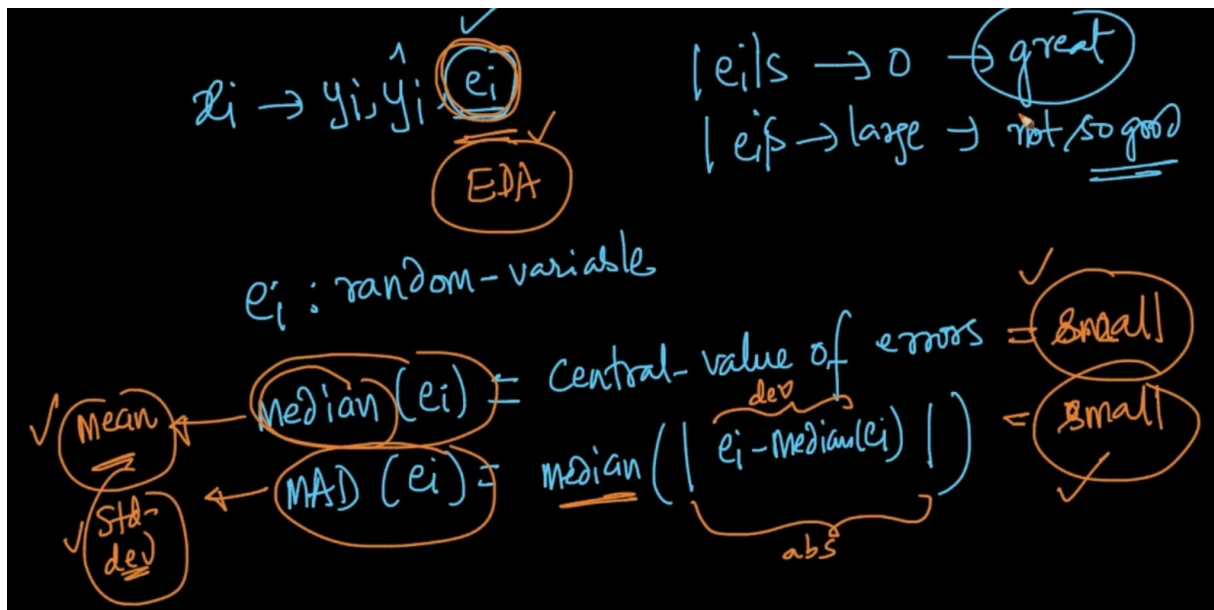 xi → yi, ŷi, ei
EDA
|ei|s → 0 → great
|ei|s → large → not so good
ei : random-variable
Mean ← Median (ei) = Central-value of errors = small
Std-dev ← MAD (ei) = median (| ei - Median(ei) |) = small
dev
abs